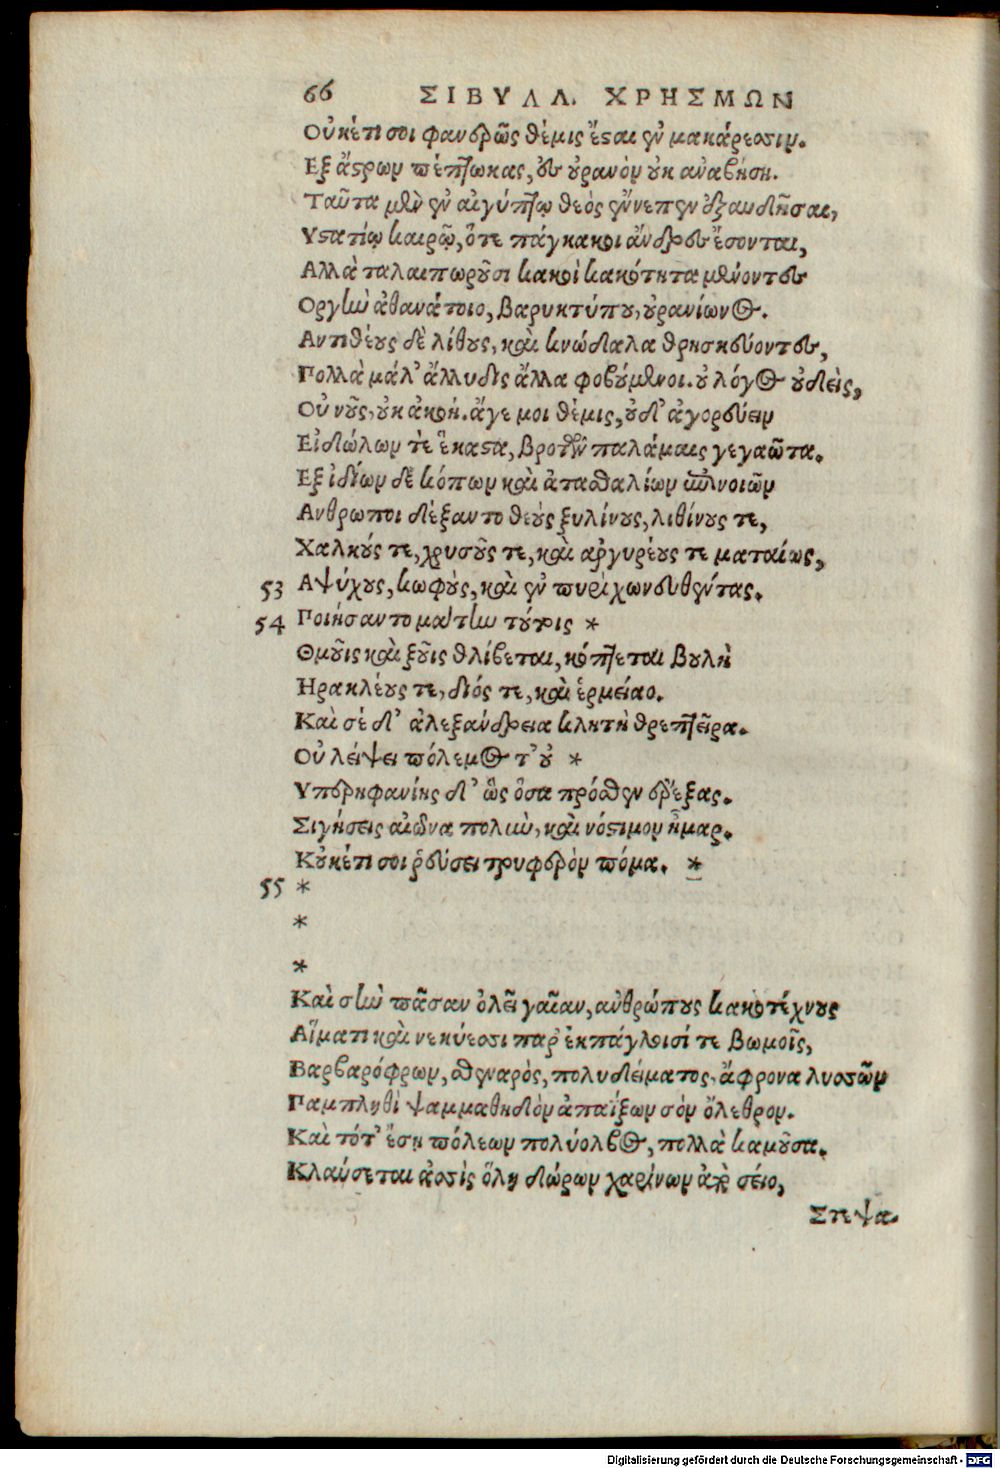 66 ΣΙΒΥΛΛ. ΧΡΗΣΜΩΝ
Οὐκέτι σοι φανερῶς θέμις ἔσαι ἐν μακάρεσσιν.
Εξ ἄστρων πέπτωκας, ἐς οὐρανὸν οὐκ ἀναβήσῃ.
Ταῦτα μὲν ἐν αἰγύπτῳ θεὸς ἔννεπεν ἐξαυδῆσαι,
Υστατίῳ καιρῷ, ὅτε πάγκακοι ἄνδρες ἔσονται,
Αλλὰ ταλαιπωροῦσι κακοὶ κακότητα μένοντες
Οργὴν ἀθανάτοιο, βαρυκτύπου, οὐρανίωνος.
Αντιθέους δὲ λίθους, καὶ κνώδαλα θρησκεύοντες,
Πολλὰ μάλ' ἄλλυδις ἄλλα φοβούμενοι. οὐ λόγος οὐδεὶς,
Οὐ νοῦς, οὐκ ἀκοή. ἅγε μοι θέμις, οὐδ' ἀγορεύειν
Εἰδώλων τὲ ἕκαστα, βροτῶν παλάμαις γεγαῶτα.
Εξ ἰδίων δὲ κόπων καὶ ἀτασθαλίων ἐπινοιῶν
Ανθρωποι δέξαντο θεοὺς ξυλίνους, λιθίνους τε,
Χαλκούς τε, χρυσοῦς τε, καὶ ἀργυρέους τε ματαίως,
53 Αψύχους, κωφοὺς, καὶ ἐν πυρὶ χωνευθέντας.
54 Ποιήσαντο μάτην τούτοις *
Θμοῦις καὶ ξοῦις θλίβεται, κόπτεται βουλὴ
Ηρακλέους τε, διός τε, καὶ ἑρμείαο.
Καὶ σέ δ' ἀλεξάνδρεια κλητὴ θρεπτεῖρα.
Οὐ λείψει πόλεμος τ' οὐ *
Υπερηφανίης δ' ὣς ὅσα πρόσθεν ἔρεξας.
Σιγήσεις αἰῶνα πολὺν, καὶ νόστιμον ἦμαρ.
Κοὐκέτι σοι ῥεύσει τρυφερὸν πόμα. *
55 *
*
*
Καὶ σὴν πᾶσαν ὀλεῖ γαῖαν, ἀνθρώπους κακοτέχνους
Αἵματι καὶ νεκύεσσι παρ' ἐκπάγλοισί τε βωμοῖς,
Βαρβαρόφρων, σθεναρὸς, πολυδείματος, ἄφρονα λυσσῶν
Παμπληθὶ ψαμμαθηδὸν ἀπαίξων σὸν ὄλεθρον.
Καὶ τότ' ἔσῃ πόλεων πολύολβος, πολλὰ καμοῦσα.
Κλαύσεται ἀσσὶς ὅλη δώρων χαρίνων ἀπὸ σέιο,
Στεψα.
Digitalisierung gefördert durch die Deutsche Forschungsgemeinschaft - DFG